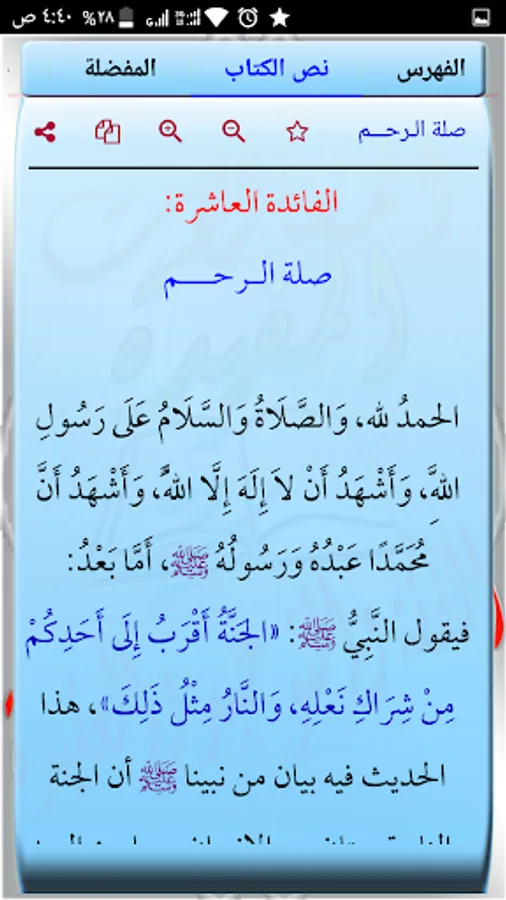 ٤:٤٠ ص ٢٨%
الفهرس نص الكتاب المفضلة
صلة الرحـــم
الفائدة العاشرة:
صلة الـرحــــم
الحمدُ لله، وَالصَّلَاةُ وَالسَّلَامُ عَلَى رَسُولِ
اللهِ، وَأَشْهَدُ أَنْ لاَ إِلَهَ إِلَّا اللهُ، وَأَشْهَدُ أَنَّ
مُحَمَّدًا عَبْدُهُ وَرَسُولُهُ ﷺ، أَمَّا بَعْدُ:
فيقول النَّبِيُّ ﷺ: «الجَنَّةُ أَقْرَبُ إِلَى أَحَدِكُمْ
مِنْ شِرَاكِ نَعْلِهِ، وَالنَّارُ مِثْلُ ذَلِكَ»، هذا
الحديث فيه بيان من نبينا ﷺ أن الجنة